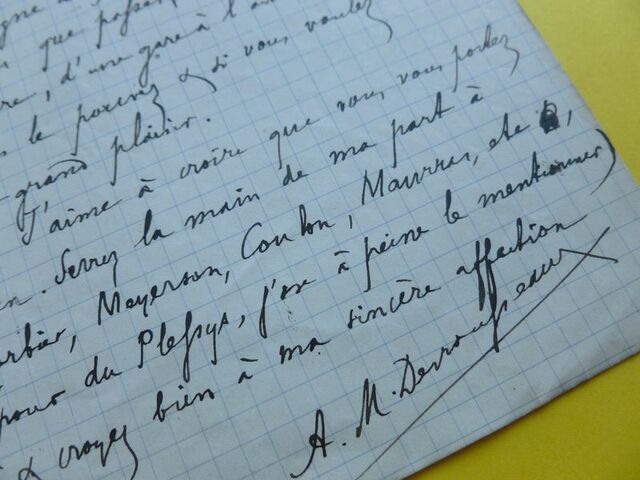 que passer,
d'une gare à l'au
le pouvez & si vous voulez
grand plaisir.
J'aime à croire que vous vous portez
en. Serrez la main de ma part à
rbier, Meyerson, Coulon, Maurras, etc,
pour du Plessys, j'ose à peine le mentionner)
& croyez bien à ma sincère affection
A. M. Desrousseaux